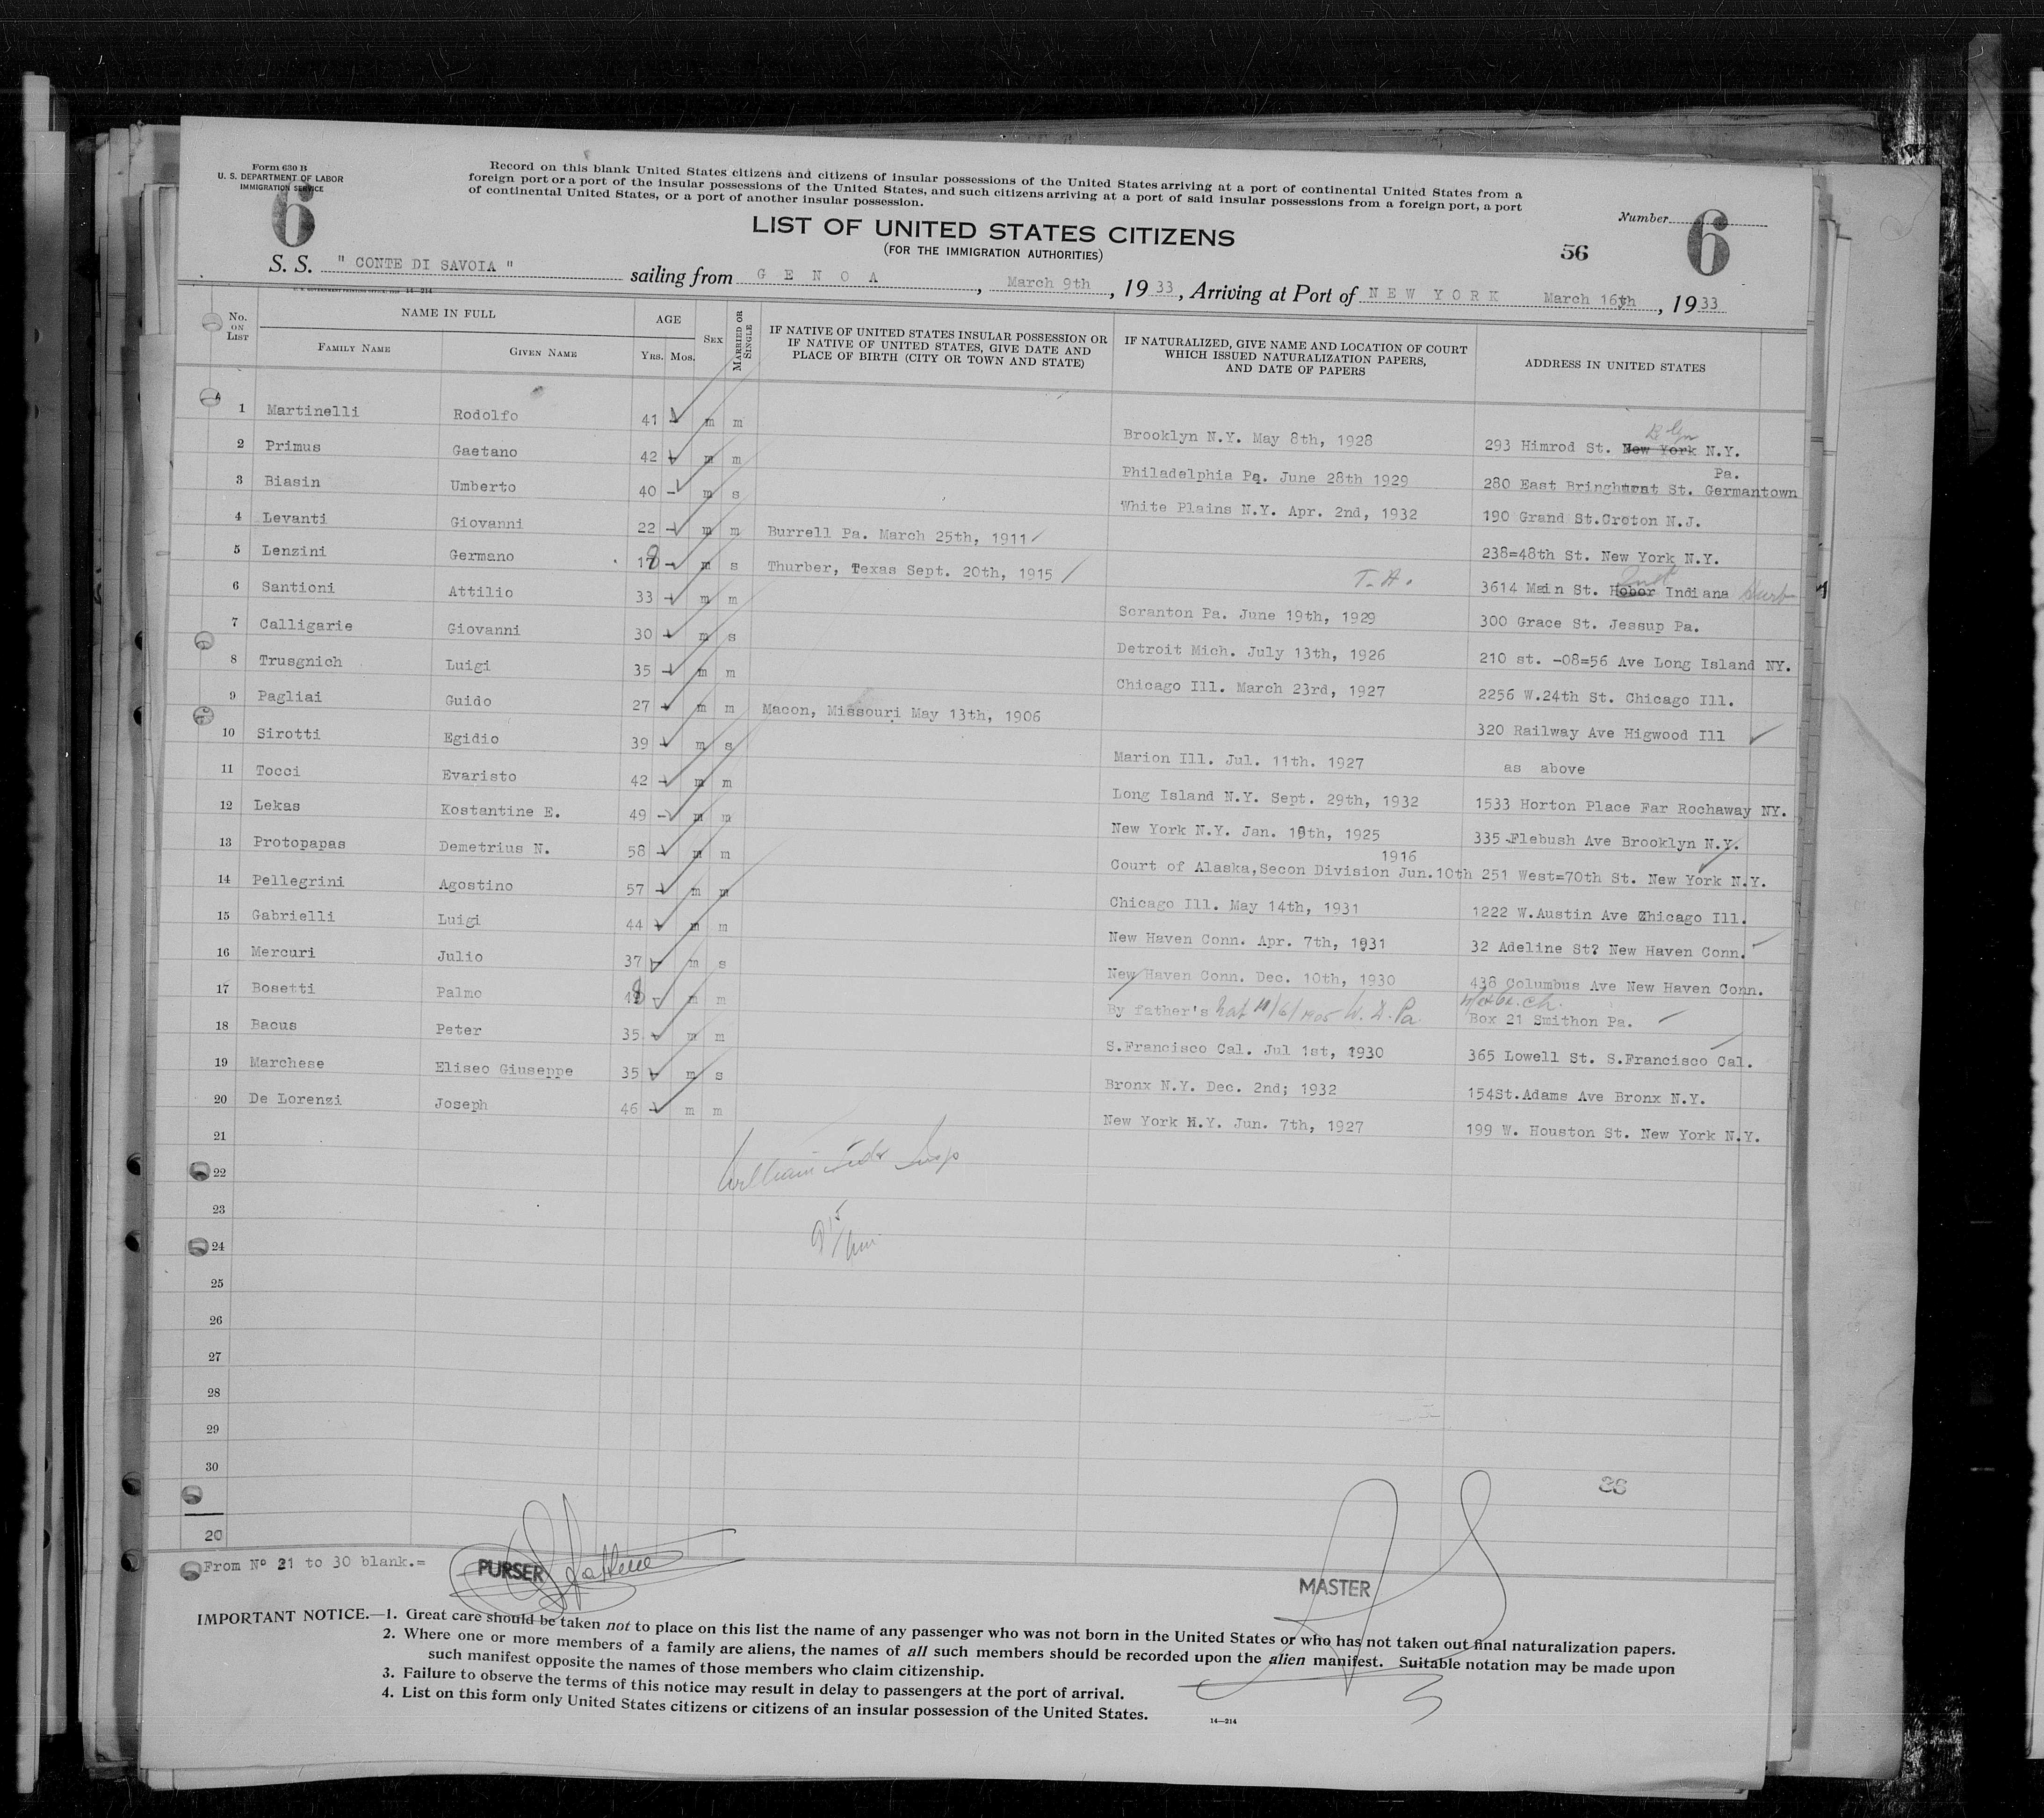 Form 630 B
U. S. DEPARTMENT OF LABOR
IMMIGRATION SERVICE
6
Record on this blank United States citizens and citizens of insular possessions of the United States arriving at a port of continental United States from a
foreign port or a port of the insular possessions of the United States, and such citizens arriving at a port of said insular possessions from a foreign port, a port
of continental United States, or a port of another insular possession.
LIST OF UNITED STATES CITIZENS
(FOR THE IMMIGRATION AUTHORITIES)
Number 6
56
S. S. " CONTE DI SAVOIA " sailing from G E N O A , March 9th , 19 33 , Arriving at Port of N E W Y O R K March 16th , 19 33
No. ON LIST NAME IN FULL FAMILY NAME GIVEN NAME AGE YRS. MOS. SEX MARRIED OR SINGLE IF NATIVE OF UNITED STATES INSULAR POSSESSION OR IF NATIVE OF UNITED STATES, GIVE DATE AND PLACE OF BIRTH (CITY OR TOWN AND STATE) IF NATURALIZED, GIVE NAME AND LOCATION OF COURT WHICH ISSUED NATURALIZATION PAPERS, AND DATE OF PAPERS ADDRESS IN UNITED STATES
1 Martinelli Rodolfo 41 m m Brooklyn N.Y. May 8th, 1928 293 Himrod St. New York N.Y. Bklyn
2 Primus Gaetano 42 m m Philadelphia Pa. June 28th 1929 280 East Bringhurst St. Germantown Pa.
3 Biasin Umberto 40 m s White Plains N.Y. Apr. 2nd, 1932 190 Grand St.Croton N.J.
4 Levanti Giovanni 22 m m Burrell Pa. March 25th, 1911 238=48th St. New York N.Y.
5 Lenzini Germano 18 m s Thurber, Texas Sept. 20th, 1915 T.A. 3614 Main St. Hobor Indiana
6 Santioni Attilio 33 m m Scranton Pa. June 19th, 1929 300 Grace St. Jessup Pa.
7 Calligarie Giovanni 30 m s Detroit Mich. July 13th, 1926 210 st. -08=56 Ave Long Island NY.
8 Trusgnich Luigi 35 m m Chicago Ill. March 23rd, 1927 2256 W.24th St. Chicago Ill.
9 Pagliai Guido 27 m m Macon, Missouri May 13th, 1906 320 Railway Ave Higwood Ill
10 Sirotti Egidio 39 m s Marion Ill. Jul. 11th. 1927 as above
11 Tocci Evaristo 42 m m Long Island N.Y. Sept. 29th, 1932 1533 Horton Place Far Rochaway NY.
12 Lekas Kostantine E. 49 m m New York N.Y. Jan. 19th, 1925 335 Flebush Ave Brooklyn N.Y.
13 Protopapas Demetrius N. 58 m m Court of Alaska,Secon Division Jun.10th 1916 251 West=70th St. New York N.Y.
14 Pellegrini Agostino 57 m m Chicago Ill. May 14th, 1931 1222 W.Austin Ave Chicago Ill.
15 Gabrielli Luigi 44 m m New Haven Conn. Apr. 7th, 1931 32 Adeline St? New Haven Conn.
16 Mercuri Julio 37 m s New Haven Conn. Dec. 10th, 1930 438 Columbus Ave New Haven Conn.
17 Bosetti Palmo 48 m m By father's nat 10/6/1905 W. D. Pa. Box 21 Smithon Pa.
18 Bacus Peter 35 m m S.Francisco Cal. Jul 1st, 1930 365 Lowell St. S.Francisco Cal.
19 Marchese Eliseo Giuseppe 35 m s Bronx N.Y. Dec. 2nd; 1932 154St.Adams Ave Bronx N.Y.
20 De Lorenzi Joseph 46 m m New York N.Y. Jun. 7th, 1927 199 W. Houston St. New York N.Y.
21
22
23
24
25
26
27
28
29
30
20
From Nº 21 to 30 blank.=
PURSER
MASTER
IMPORTANT NOTICE.—1. Great care should be taken not to place on this list the name of any passenger who was not born in the United States or who has not taken out final naturalization papers.
2. Where one or more members of a family are aliens, the names of all such members should be recorded upon the alien manifest. Suitable notation may be made upon
such manifest opposite the names of those members who claim citizenship.
3. Failure to observe the terms of this notice may result in delay to passengers at the port of arrival.
4. List on this form only United States citizens or citizens of an insular possession of the United States.
14—214